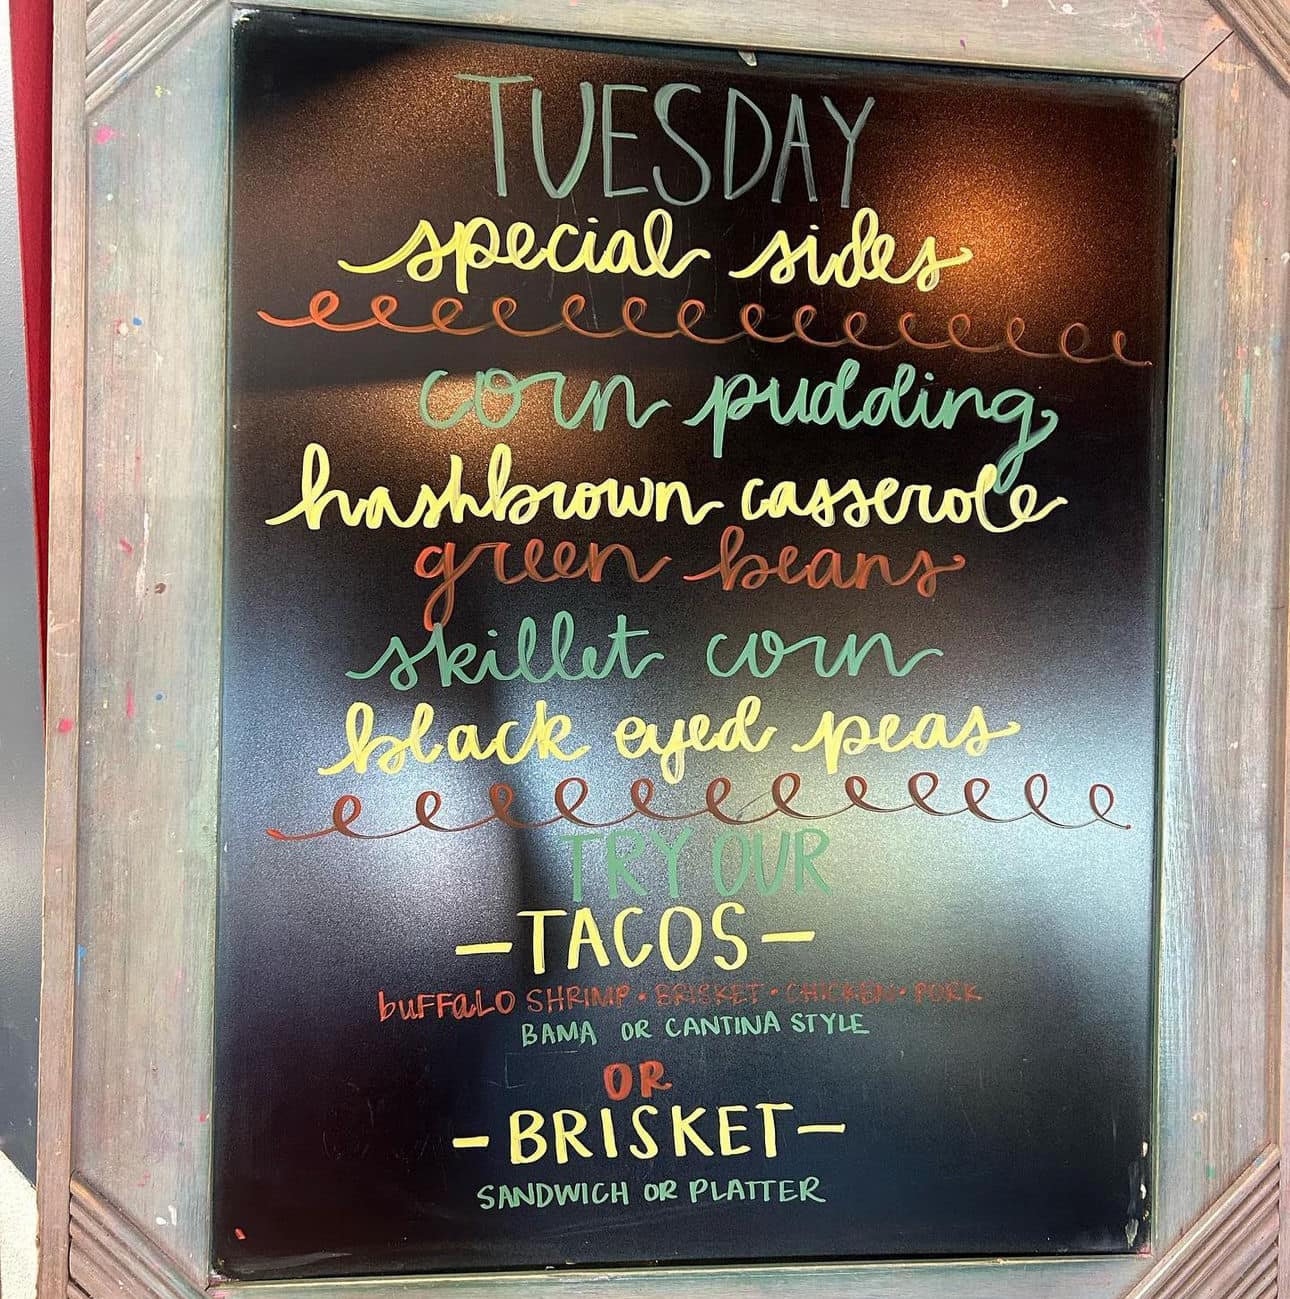 TUESDAY
special sides
corn pudding
hashbrown casserole
green beans
skillet corn
black eyed peas
TRY OUR
-TACOS-
buFFALO SHRIMP • BRISKET • CHICKEN • PORK
BAMA OR CANTINA STYLE
OR
-BRISKET-
SANDWICH OR PLATTER